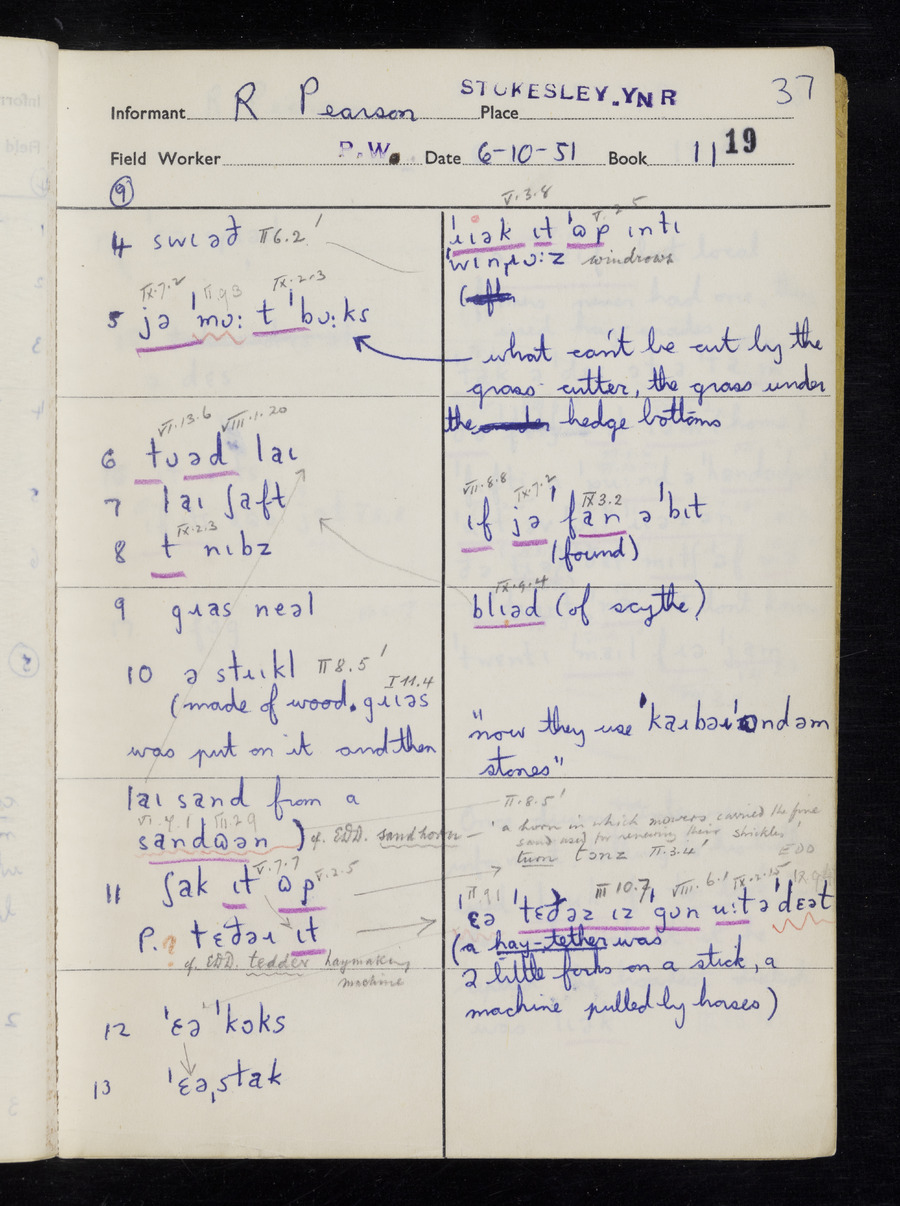 37
STOKESLEY. YNR
Informant R Pearson Place
Field Worker P.W. Date 6-10-51 Book 11 19
9
4 swɪəð II 6.2'
IX.7.2 II 9 3 IX.2.3
5 jə 'mʊ: t 'bʊ:ks
VI.13.6 VIII.1.20
6 tʊəd laɪ
7 laɪ ʃaft
IX.2.3
8 t nɪbz
9 gɹas neəl
10 ə stɹɪkl II 8.5'
I 11.4
(made of wood. gɹɪəs
was put on it and then
laɪ sand from a
VI.4.1 III.2 9
sandʊən ) cf. EDD. sandhorn
V.7.7 V.2.5
11 ʃak ɪt ʊp
P. ? tɛðəɹ ɪt
cf. EDD. tedder haymaking
machine
12 'ɛə 'koks
13 'ɛəˌstak
V.3.8
'ɹɪək ɪt 'ʊp ɪntɪ
'wɪnɹʊ:z windrows
what can't be cut by the
grass cutter, the grass under
the hedge bottoms
VII.8.8 IX.7.2 IX 3.2
ɪf jə 'fan ə 'bɪt
(found)
IX.9.4
blɪəd (of scythe)
"now they use 'kaɪbəɹ'ʊndəm
stones"
II.8.5'
'a horn in which mowers carried the fine
sand used for renewing their strickles'
EDD
turn tənz II.3.4'
II 9 1 III 10.7 VIII.6.1 IX.2.15
'ɛə 'tɛðəz ɪz 'gʊn ɹɪ:t ə 'dɛət
(a hay-tether was
2 little forks on a stick, a
machine pulled by horses)